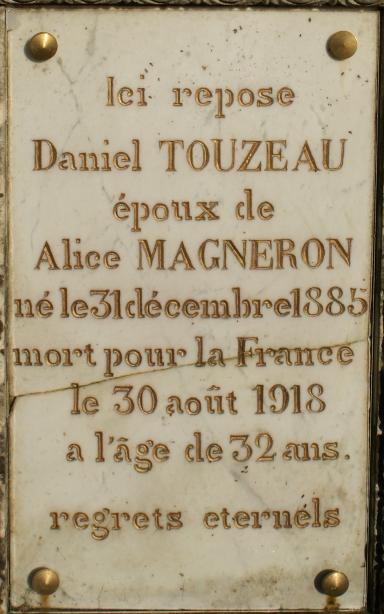 Ici repose
Daniel TOUZEAU
époux de
Alice MAGNERON
né le 31 décembre 1885
mort pour la France
le 30 août 1918
a l'âge de 32 ans.
regrets eternéls